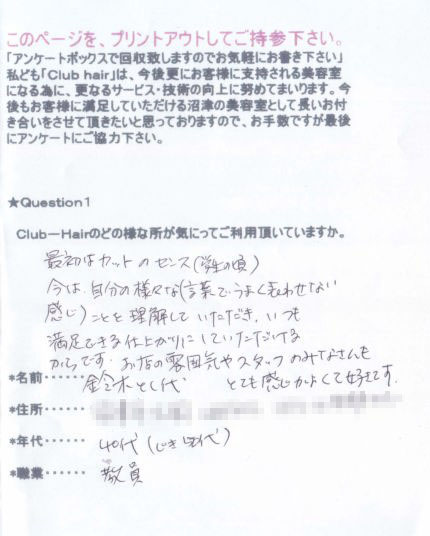 このページを、プリントアウトしてご持参下さい。
「アンケートボックスで回収致しますのでお気軽にお書き下さい」
私ども「Club hair」は、今後更にお客様に支持される美容室
になる為に、更なるサービス・技術の向上に努めてまいります。今
後もお客様に満足していただける沼津の美容室として長いお付
き合いをさせて頂きたいと思っておりますので、お手数ですが最後
にアンケートにご協力下さい。
★Question1
Club－Hairのどの様な所が気にってご利用頂いていますか。
最初はカットのセンス(学生の頃)
今は、自分の様々な(言葉でうまく表わせない
感じ)ことを理解していただき、いつも
満足できる仕上がりにしていただける
からです。お店の雰囲気やスタッフのみなさんも
とても感じがよくて好きです。
*名前・・・・・・ 鈴木とし代
*住所・・・・・・
*年代・・・・・・ 40代(じき50代)
*職業・・・・・・ 教員